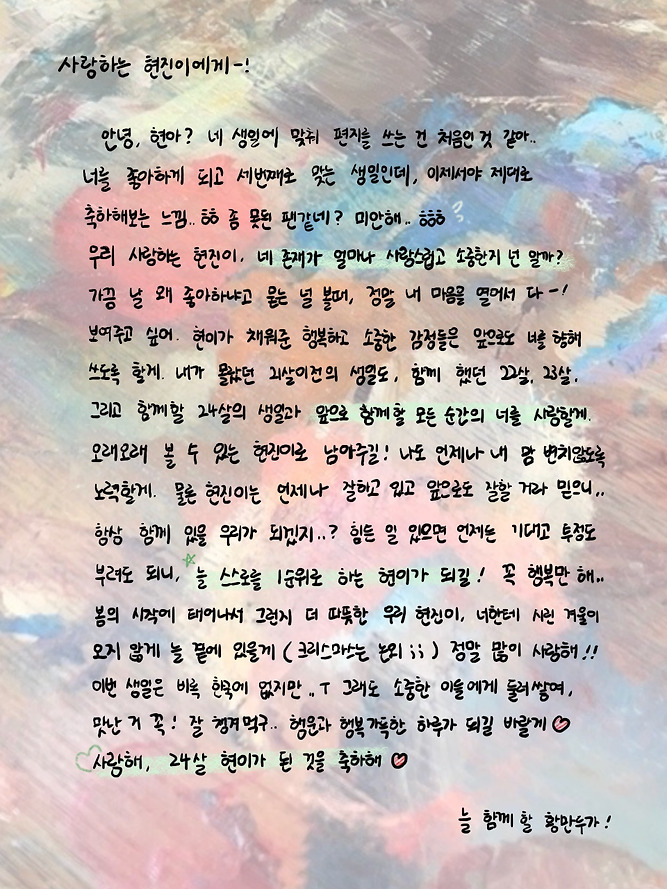 사랑하는 현진이에게-!
안녕, 현아? 네 생일에 맞춰 편지를 쓰는 건 처음인 것 같아..
너를 좋아하게 되고 세번째로 맞는 생일인데, 이제서야 제대로
축하해보는 느낌.. ㅎㅎ 좀 못된 팬같네? 미안해.. ㅎㅎㅎ
우리 사랑하는 현진이, 네 존재가 얼마나 사랑스럽고 소중한지 넌 알까?
가끔 날 왜 좋아하냐고 묻는 널 볼때, 정말 내 마음을 열어서 다-!
보여주고 싶어. 현이가 채워준 행복하고 소중한 감정들은 앞으로도 너를 향해
쓰도록 할게. 내가 몰랐던 21살이전의 생일도, 함께 했던 22살, 23살,
그리고 함께할 24살의 생일과 앞으로 함께할 모든 순간의 너를 사랑할게.
오래오래 볼 수 있는 현진이로 남아주길! 나도 언제나 내 맘 변치않도록
노력할게. 물론 현진이는 언제나 잘하고 있고 앞으로도 잘할 거라 믿으니..
항상 함께 있을 우리가 되겠지..? 힘든 일 있으면 언제든 기대고 투정도
부려도 되니, 늘 스스로를 1순위로 하는 현이가 되길! 꼭 행복만 해..
봄의 시작에 태어나서 그런지 더 따뜻한 우리 현진이, 너한테 시린 겨울이
오지 않게 늘 곁에 있을게 (크리스마스는 논외;;) 정말 많이 사랑해!!
이번 생일은 비록 한국에 없지만..ㅜ 그래도 소중한 이들에게 둘러쌓여,
맛난 거 꼭! 잘 챙겨먹구.. 행운과 행복가득한 하루가 되길 바랄게 ♡
사랑해, 24살 현이가 된 것을 축하해 ♡
늘 함께 할 황만두가!